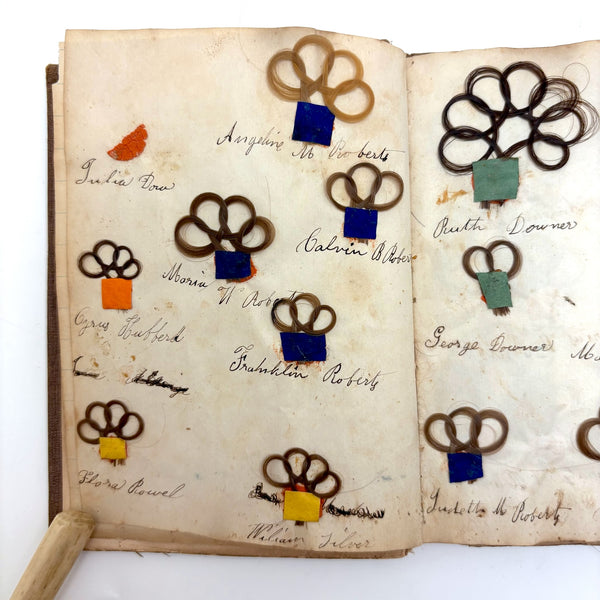 Angeline M Roberts
Julia Dow
Calvin B Rober
Maria W Roberts
Cyrus Hubberd
Franhklin Roberts
Flora Rowel
William Silver
Ruth Downer
George Downer
Ma
Judeth M Roberts